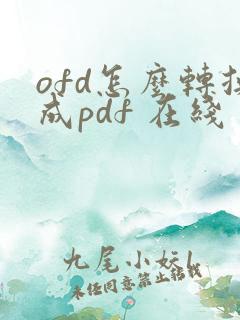 ofd怎麼轉換
成pdf 在綫
九尾小妖l
未经同意禁止转载